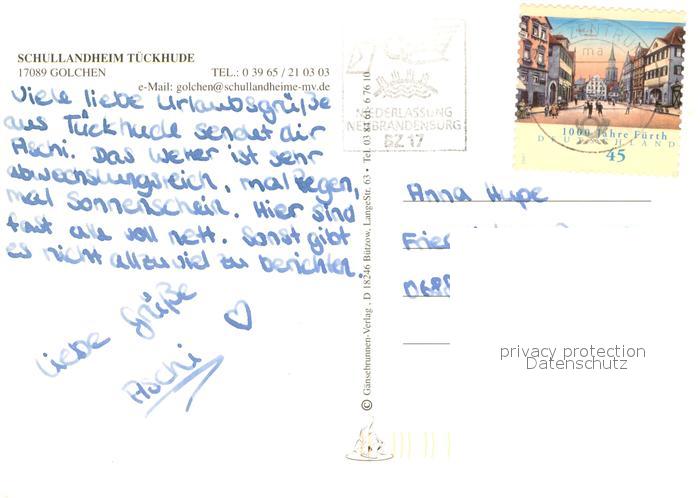 SCHULLANDHEIM TÜCKHUDE
17089 GOLCHEN TEL.: 0 39 65 / 21 03 03
e-Mail: golchen@schullandheime-mv.de
Viele liebe Urlaubsgrüße
aus Tückhude sendet dir
Aschi. Das Wetter ist sehr
abwechslungsreich, mal Regen,
mal Sonnenschein. Hier sind
fast alle voll nett. Sonst gibt
es nicht allzuviel zu berichten.
Liebe Grüße
Aschi
© Gänsebrunnen-Verlag . D 18246 Bützow, LangeStr. 63 • Tel. 03 84 61- 6 76 10
NIEDERLASSUNG
NEUBRANDENBURG
BZ 17
ZENTRUM
ma
1000 Jahre Fürth
DEUTSCHLAND
45
Anna Hupe
Frie
privacy protection
Datenschutz